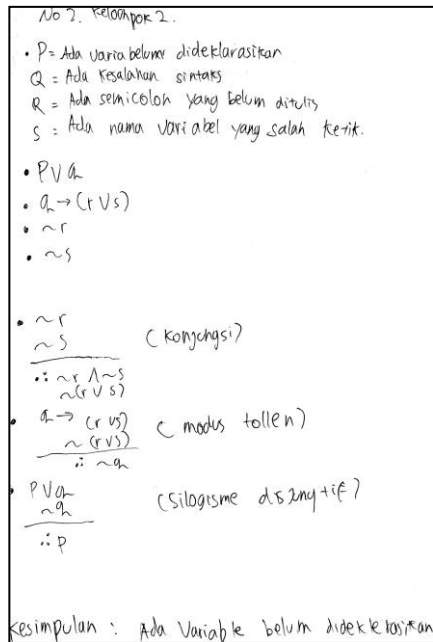 No 2. Kelompok 2.
• P = Ada variabelume dideklarasikan
Q = Ada kesalahan sintaks
R = Ada semicolon yang belum ditulis
S = Ada nama variabel yang salah ketik.
• P ∨ q
• q → (r ∨ s)
• ~r
• ~s
• ~r
~s (konjungsi)
∴ ~r ∧ ~s
~(r ∨ s)
• q → (r ∨ s) (modus tollen)
~(r ∨ s)
∴ ~q
• P ∨ q (silogisme
~q
∴ p
Kesimpulan : Ada Variable belum